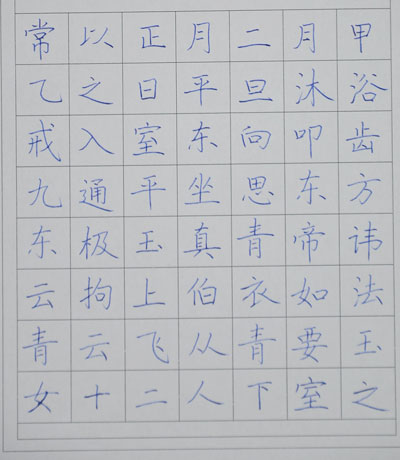 常以正月二月甲
乙之日平旦沐浴
戒入室东向叩齿
九通平坐思东方
东极玉真青帝讳
云拘上伯衣如法
青云飞从青要玉
女十二人下室之